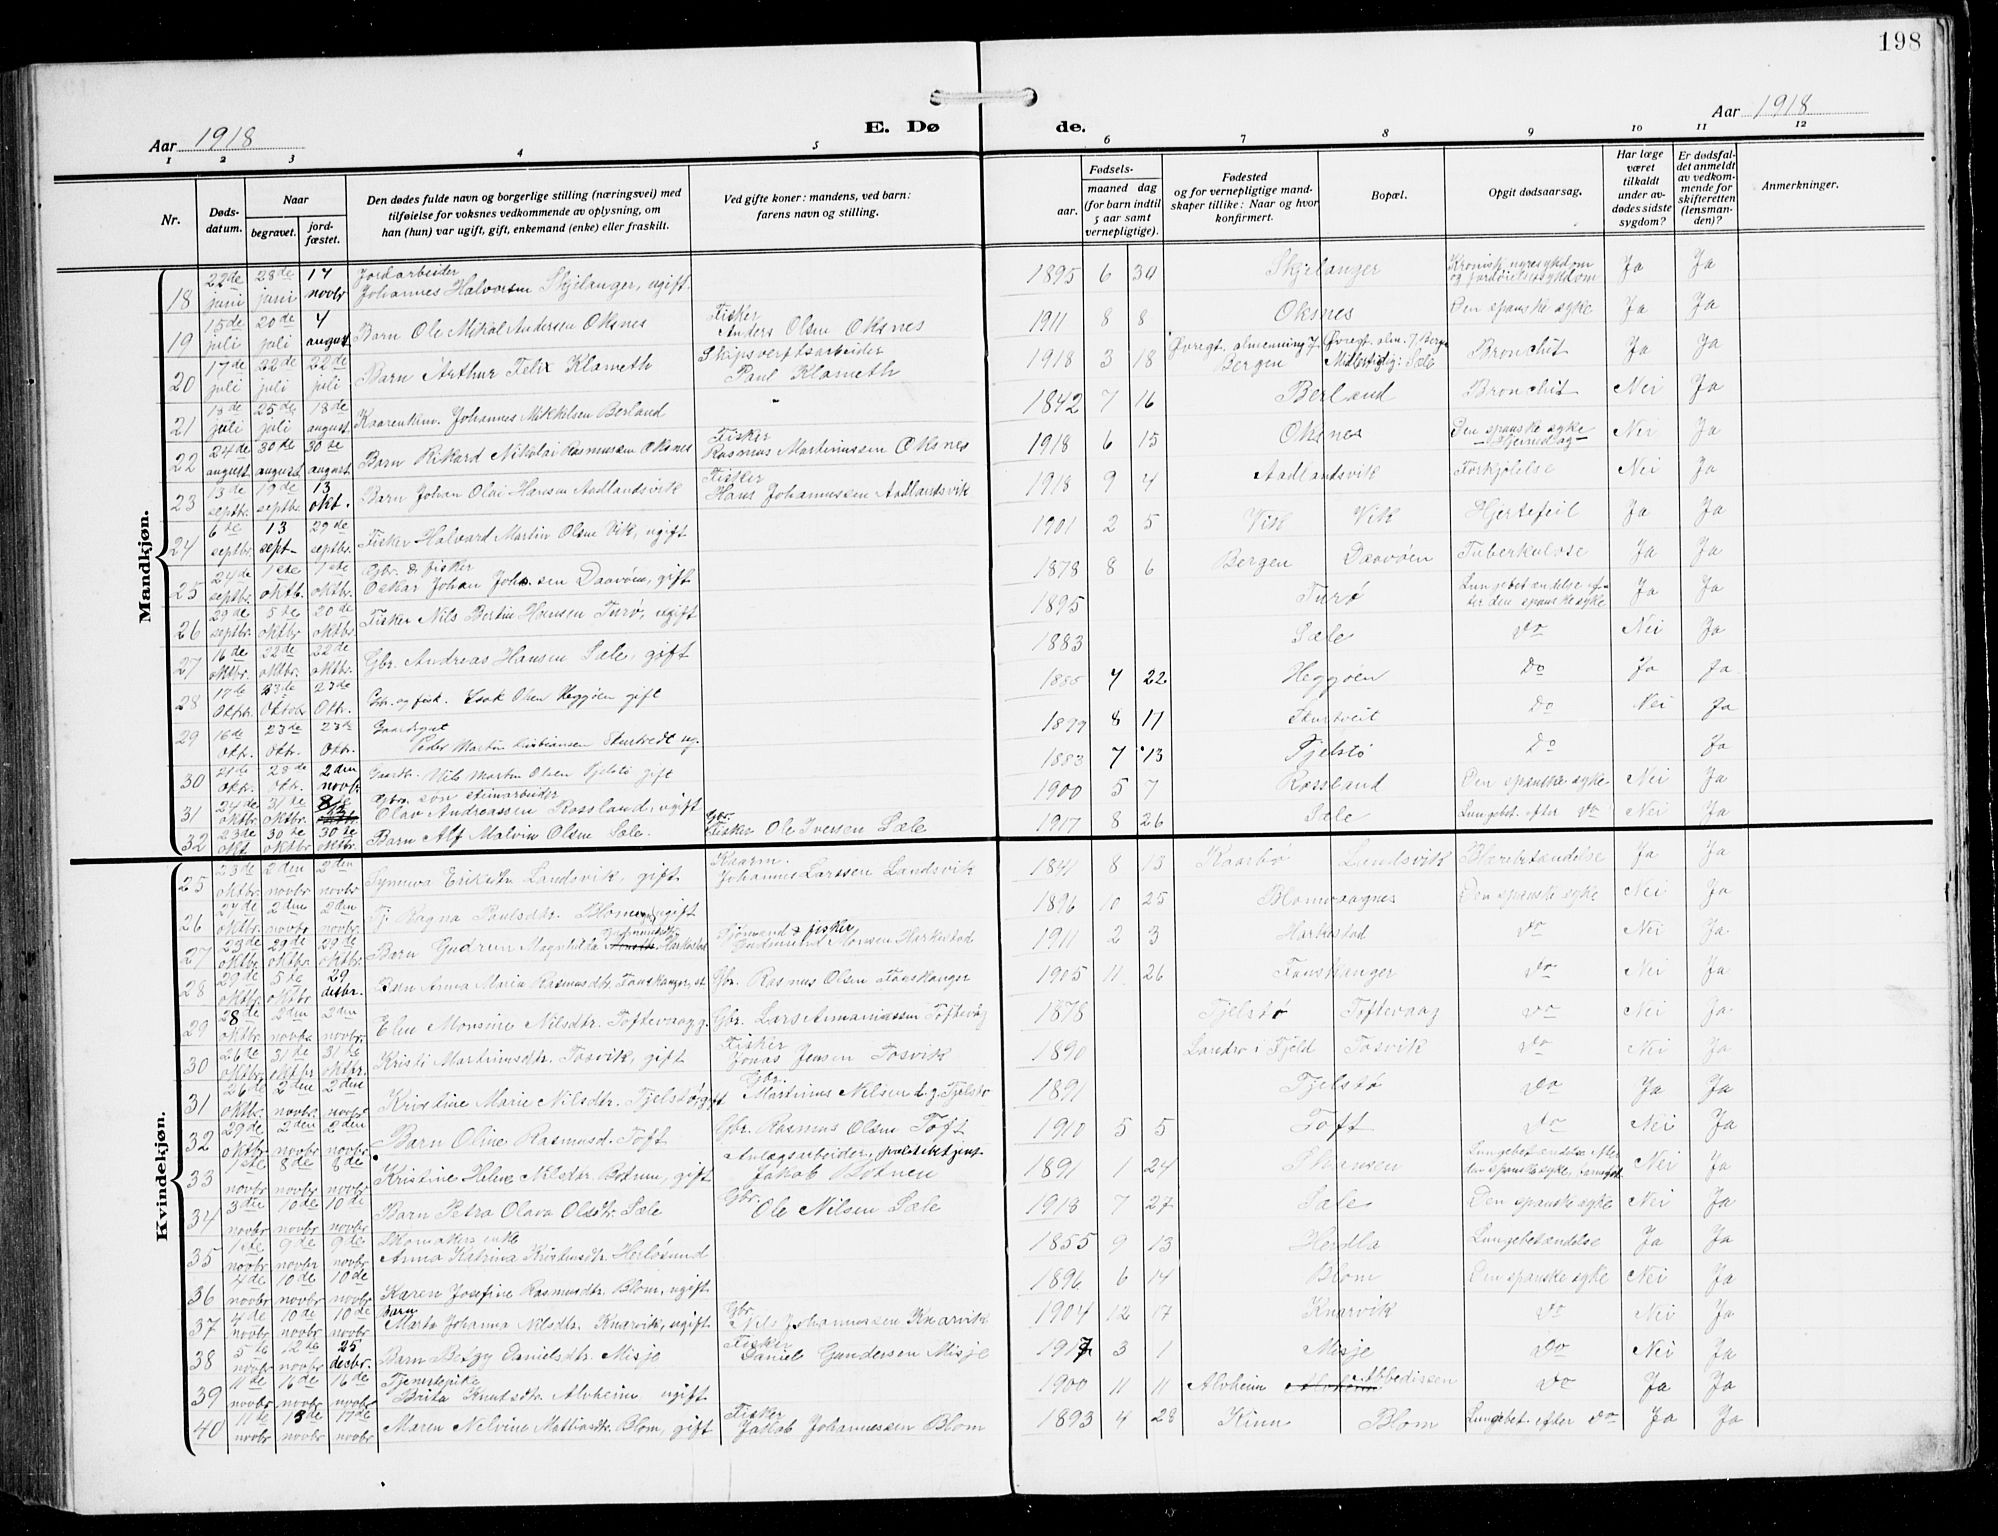 198
Aar 1918
E. Dø
de.
Aar 1918
1 2 3 4 5 6 7 8 9 10 11 12
Nr.
Døds-
datum.
Naar
begravet.
jord-
fæstet.
Den dødes fulde navn og borgerlige stilling (næringsvei) med
tilføielse for voksnes vedkommende av oplysning, om
han (hun) var ugift, gift, enkemand (enke) eller fraskilt.
Ved gifte koner: mandens, ved barn:
farens navn og stilling.
Fødsels-
aar.
maaned dag
(for barn indtil
5 aar samt
vernepligtige).
Fødested
og for vernepligtige mand-
skaper tillike: Naar og hvor
konfirmert.
Bopæl.
Opgit dødsaarsag.
Har læge
været
tilkaldt
under av-
dødes sidste
sygdom?
Er dødsfal-
det anmeldt
av vedkom-
mende for
skifteretten
(lensman-
den)?
Anmerkninger.
Mandkjøn.
18 22de juni 28de juni 17 novbr Jordarbeider Johannes Halvorsen Skjelanger, ugift. 1895 6 30 Skjelanger Kronisk nyresykdom og Ja Ja
19 15de juli 20de juli 4 august Barn Ole Mikal Andersen Oksnes Fisker Anders Olsen Oksnes 1911 8 8 Oksnes Den spanske syke Ja Ja
20 17de juli 22de juli 22de juli Barn Arthur Felix Klameth Skipsverftsarbeider Paul Klameth 1918 3 18 Øvregt. almenning 7 Bergen Øvregt. alm. 7 Bergen Midlertidig: Sæle Bronchit Ja Ja
21 18de juli 25de juli 18de august Kaarenkem. Johannes Mikkelsen Berland 1842 7 16 Berland Bronchit Nei Ja
22 24de august 30de august 30te august Barn Rikard Nikolai Rasmussen Oksnes Fisker Rasmus Martinussen Oksnes 1918 6 15 Oksnes Den spanske syke Nei Ja
23 13de septbr. 19de septbr. 13 okt. Barn Johan Olai Hansen Aadlandsvik Fisker Hans Johannussen Aadlandsvik 1918 9 4 Aadlandsvik Forkjølelse Nei Ja
24 6te septbr. 13 sept- 29de septbr. Fisker Halvard Martin Olsen Vik, ugift 1901 2 5 Vik Vik Hjertefeil Ja Ja
25 24de septbr. 1ste oktb. 1ste oktbr. Gbr. & fisker Oskar Johan Johnsen Daavøen, gift 1878 8 6 Bergen Daavøen Tuberkulose Ja Ja
26 29de septbr. 5te oktbr. 20de oktbr. Fisker Nils Bertin Hansen Turø, ugift 1895 Turø Lungebetændelse efter den spanske syke Ja Ja
27 16de oktbr. 22de oktbr. 22de oktbr. Gbr. Andreas Hansen Sæle, gift 1883 Sæle do Nei Ja
28 17de Oktbr. 23de Oktober 23de Oktr. Gbr. og fisk. Isak Olsen Heggøen gift 1885 4 22 Heggøen Do Ja Ja
29 16de Okt. 23de Okt. 23de Okt. Peder Martin Kristiansen Sturtvedt ug. 1899 8 17 Sturtveit Do Nei Ja
30 21de Okt. 28de Okt. 2den novbr. Gaardbr. Nils Martin Olsen Fjelstø gift 1883 7 13 Fjelstø Do Ja
31 24de oktbr. 31te oktbr. 8de Gbr. søn Olav Andreassen Rossland, ugift 1900 5 7 Rossland Den spanske syke Nei Ja
32 23de okt. 30te oktbr. 30te oktbr. Barn Alf Malvin Olsen Sæle. Gbr. Fisker Ole Iversen Sæle 1917 8 26 Sæle Lungebet. efter do Nei Ja
Kvindekjøn.
25 23de oktbr. 2den novbr. 2den novbr. Synneva Eriksdtr. Landsvik, gift Kaarm. Johannes Larssen Landsvik 1841 8 13 Kaarbø Landsvik Blærebetændelse Ja Ja
26 27de oktbr. 2den novbr. 2den novbr. Tj. Ragna Paulsdtr. Blom, ugift 1896 10 25 Blomvaagnes Den spanske syke Nei Ja
27 23de oktbr. 29de oktbr. 29de oktbr. Barn Gudrun Magnhilda Harkestad Fjørmand & fisker Gudmund Monsen Harkestad 1911 2 3 Harkestad do Nei Ja
28 29de oktbr. 5te oktbr. 29 desbr. Barn Anna Maria Rasmusdtr. Fonskanger, Gbr. Rasmus Olsen Fonskanger 1905 11 26 Fonskanger do Nei Ja
29 28de oktbr. 2den novbr. 2den novbr. Elen Monsine Nilsdtr. Toftevaag g. Gbr. Lars Annaniassen Toftevåg 1878 Fjelstø Toftevaag do Nei Ja
30 26de oktbr. 31te oktbr 31te oktbr. Kristi Martinusdtr. Tosvik, gift Fisker Jonas Jensen Tosvik 1890 Landro i Fjeld Tosvik do Nei Ja
31 26de oktbr. 2den novbr. 2den novbr. Kristine Marie Nilsdtr. Fjelstø, gift Gbr. Martinus Nilsen d.y. Fjelstø 1891 Fjelstø do Ja Ja
32 29de oktbr. 2den novbr. 2den novbr. Barn Oline Rasmusd. Toft Gbr. Rasmus Olsen Toft 1910 5 5 Toft do Nei Ja
33 1ste novbr. 8de novbr. 8de novbr. Kristine Helene Nilsdtr. Botnen, gift Anlægsarbeider, Jakob Botnen 1891 1 24 Lungebetændelse efter den spanske syke, Nei Ja
34 3die novbr 10de novbr. 10de novbr. Barn Petra Olava Olsdtr. Sæle Gbr. Ole Nilsen Sæle 1913 7 27 Sæle Den spanske syke Nei Ja
35 1ste novbr. 9de novbr 9de novbr. Skomakers enke Anna Katrina Kristensdtr. Herløsund 1855 9 13 Herdla Lungebetændelse Ja Ja
36 4de novbr. 10de novbr. 10de novbr. Karen Josefine Rasmusdtr. Blom, ugift 1896 6 14 Blom Den spanske syke Nei Ja
37 4de novbr. 10de novbr. 10de novbr. Barn Marta Johanna Nilsdtr. Knarvik, ugift Gbr. Nils Johannessen Knarvik 1904 12 17 Knarvik do Nei Ja
38 5te novbr. 12te novbr. 25 desbr. Barn Betzy Danielsdtr. Misje Fisker Daniel Gundersen Misje 1917 3 1 Misje Do Nei Ja
39 11te novbr. 16de novbr. 16de novbr. Tjenestepike Brita Knutsdtr. Alvheim ugift 1900 11 11 Alvheim Abbedissen do Ja Ja
40 11te novbr. 13de novbr. 17de novbr. Maren Nelvine Mattiasdtr. Blom, gift Fisker Jakob Johannessen Blom 1893 4 28 Kinn Blom Lungebet. efter do Ja Ja